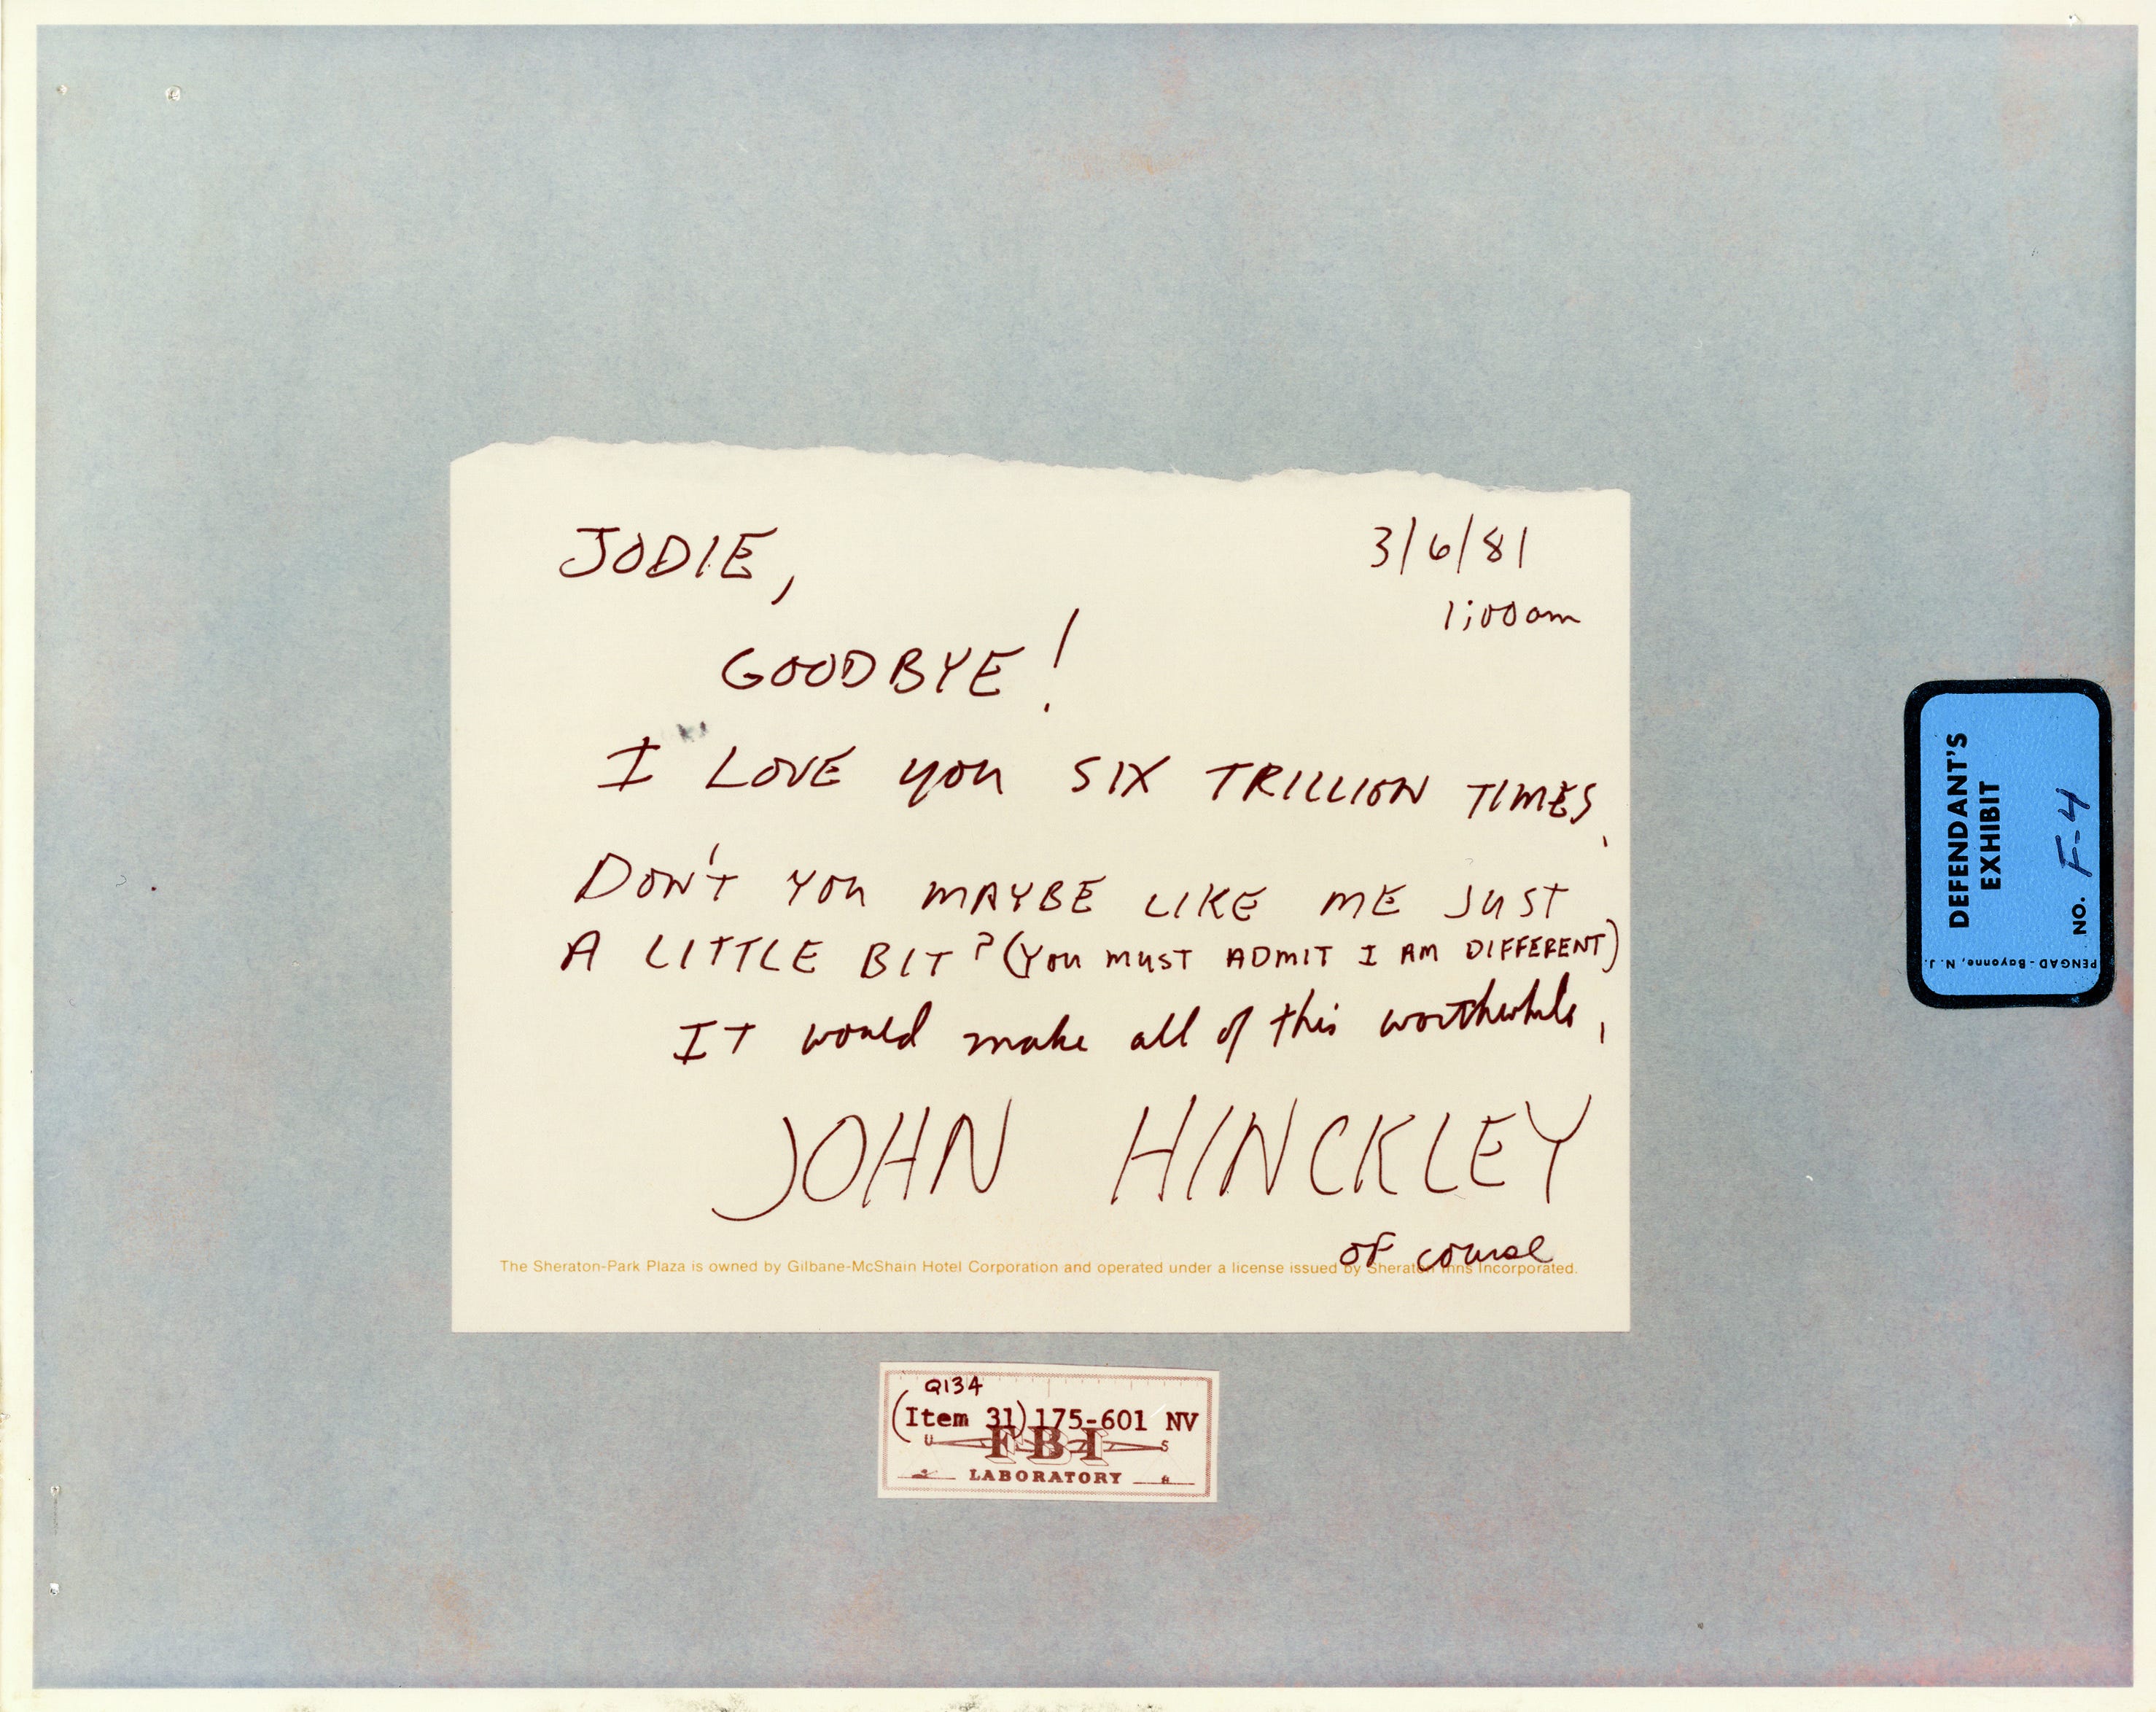 JODIE,
3/6/81
1:00am
GOODBYE!
I LOVE you SIX TRILLION TIMES.
DON'T YOU MAYBE LIKE ME JUST
A LITTLE BIT? (YOU MUST ADMIT I AM DIFFERENT)
IT would make all of this worthwhile.
JOHN HINCKLEY
of course
The Sheraton-Park Plaza is owned by Gilbane-McShain Hotel Corporation and operated under a license issued by Sheraton Inns Incorporated.
DEFENDANT'S
EXHIBIT
NO. F-4
PENGAD-Bayonne, N. J.
Q134
(Item 31) 175-601 NV
U S
FBI
LABORATORY